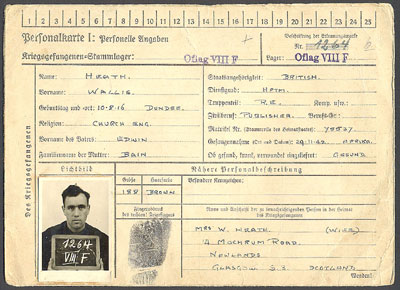 1 2 3 4 5 6 7 8 9 10 11 12 13 14 15 16 17 18 19 20 21 22 23 24 25
Personalkarte I: Personelle Angaben
Beschriftung der Erkennungsmarke
Nr. 1264
Kriegsgefangenen-Stammlager: Oflag VIII F
Lager: Oflag VIII F
Des Kriegsgefangenen
Name: HEATH.
Staatsangehörigkeit: BRITISH.
Vorname: WALLIS.
Dienstgrad: HPTM.
Geburtstag und -ort: 10.8.16 DUNDEE.
Truppenteil: R.E. Komp. usw.:
Religion: CHURCH ENG.
Zivilberuf: PUBLISHER. Berufs-Gr.:
Vorname des Vaters: EDWIN
Matrikel Nr. (Stammrolle des Heimatstaates):
Gefangennahme (Ort und Datum): 29.11.42. AFRIKA.
Familienname der Mutter: BAIN
Ob gesund, krank, verwundet eingeliefert: GESUND.
Lichtbild
Nähere Personalbeschreibung
Größe Haarfarbe
Besondere Kennzeichen:
188 BROWN.
Fingerabdruck
des rechten Zeigefingers
Name und Anschrift der zu benachrichtigenden Person in der Heimat
des Kriegsgefangenen
MRS W. HEATH. (WIFE)
MOCHRUM ROAD.
NEWLANDS
GLASGOW S.3. SCOTLAND.
Wenden!
1264
VIII F